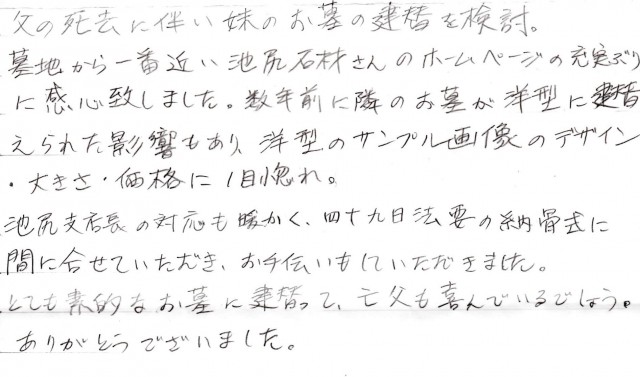 父の死去に伴い妹のお墓の建替を検討。
墓地から一番近い池尻石材さんのホームページの充実ぶり
に感心致しました。数年前に隣のお墓が洋型に建替
えられた影響もあり、洋型のサンプル画像のデザイン
・大きさ・価格に1目惚れ。
池尻支店長の対応も暖かく、四十九日法要の納骨式に
間に合せていただき、お手伝いもしていただきました。
とても素的なお墓に建替って、亡父も喜んでいるでしょう。
ありがとうございました。